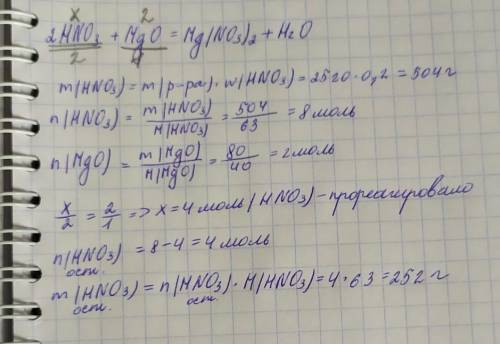 x 2
2HNO3 + MgO = Mg(NO3)2 + H2O
2 1
m(HNO3) = m(р-ра) · w(HNO3) = 2520 · 0,2 = 504 г
n(HNO3) = m(HNO3)/M(HNO3) = 504/63 = 8 моль
n(MgO) = m(MgO)/M(MgO) = 80/40 = 2 моль
x/2 = 2/1 => x = 4 моль (HNO3) - прореагировало
n(HNO3) ост. = 8 - 4 = 4 моль
m(HNO3) ост. = n(HNO3) ост. · M(HNO3) = 4 · 63 = 252 г